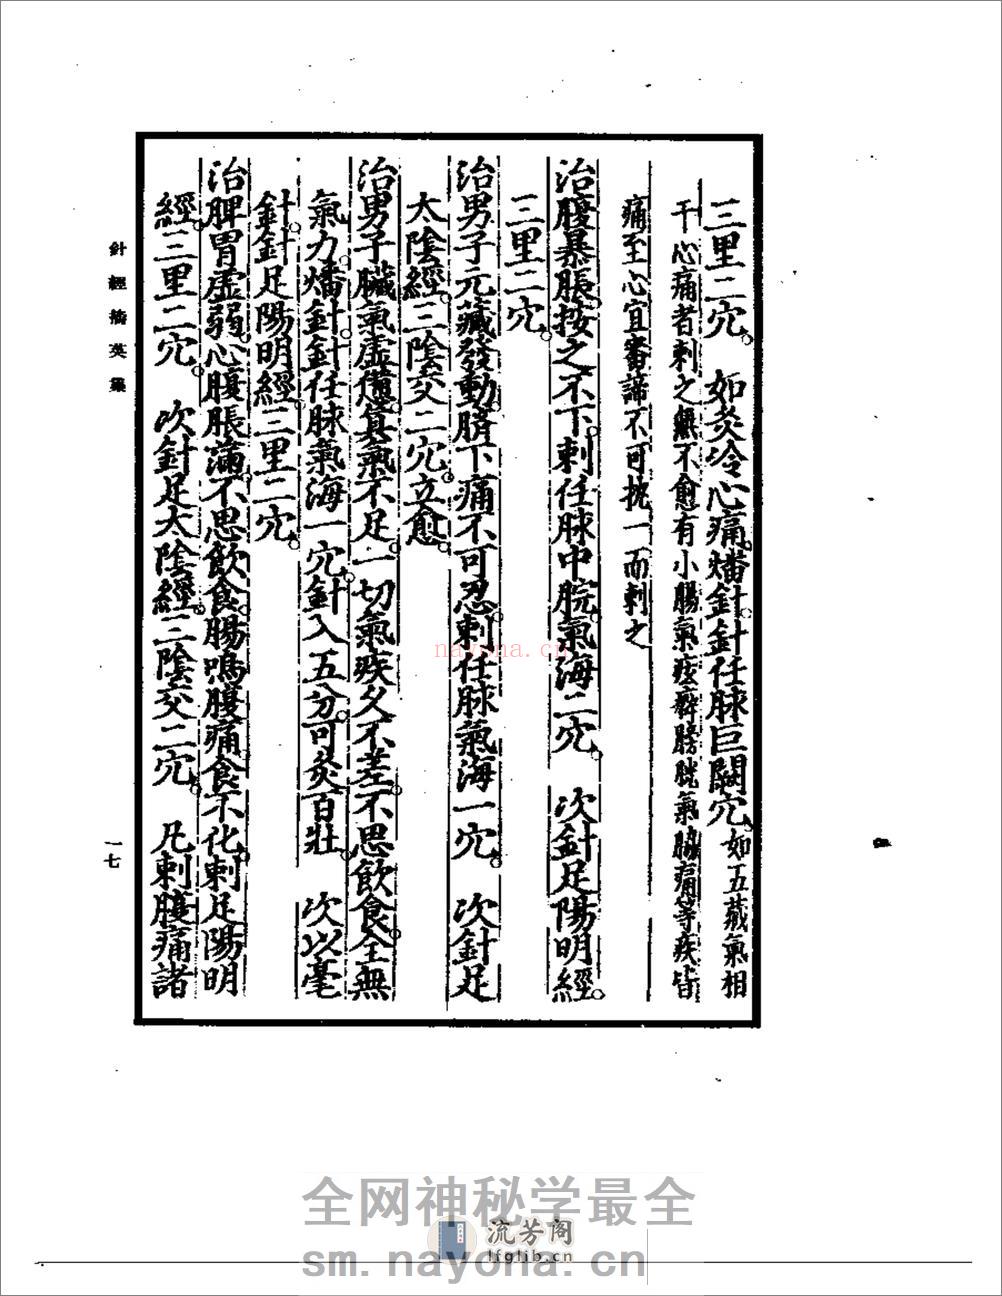 三里二穴。　如灸冷心痛。燔針。針任脉巨闕穴。如五藏氣相
干心痛者刺之無不愈有小腸氣痃癖膀胱氣脇痛等疾皆
痛至心宜審諦不可执一而刺之
治腹暴脹。按之不下。刺任脉中脘。氣海二穴。　次針足陽明經。
三里二穴。
治男子元藏發動。臍下痛不可忍。刺任脉氣海一穴。　次針足
太陰經。三陰交二穴。立愈。
治男子臓氣虚憊。真氣不足。一切氣疾久不差。不思飲食。全無
氣力。燔針。針任脉氣海一穴。針入五分。可灸百壯。　次以毫
針。針足陽明經。三里二穴。
治脾胃虚弱。心腹脹滿。不思飲食。腸鳴腹痛。食不化。刺足陽明
經。三里二穴。　次針足太陰經。三陰交二穴。　凡刺腹痛諸
針經摘英集
一七
nayona.cn
全网神秘学最全
流芳阁
lfglib.cn
sm.nayona.cn